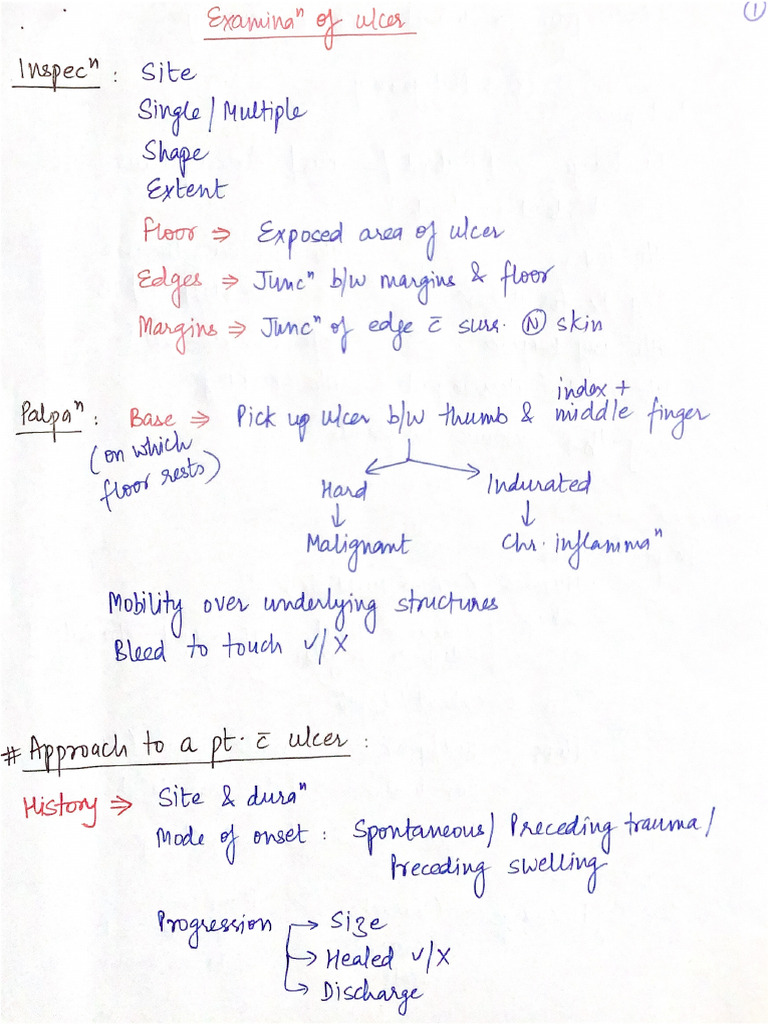 ①
Examinaⁿ of ulcer
Inspecⁿ : Site
Single/Multiple
Shape
Extent
Floor ⇒ Exposed area of ulcer
Edges ⇒ Juncⁿ b/w margins & floor
Margins ⇒ Juncⁿ of edge c̄ surr. Ⓝ skin
index +
Palpaⁿ : Base ⇒ Pick up ulcer b/w thumb & middle finger
(on which
floor rests)
Hard Indurated
↓ ↓
Malignant Chr. inflammaⁿ
Mobility over underlying structures
Bleed to touch ✓/X
# Approach to a pt. c̄ ulcer :
History ⇒ Site & duraⁿ
Mode of onset : Spontaneous/ Preceding trauma/
Preceding swelling
Progression → Size
→ Healed ✓/X
→ Discharge